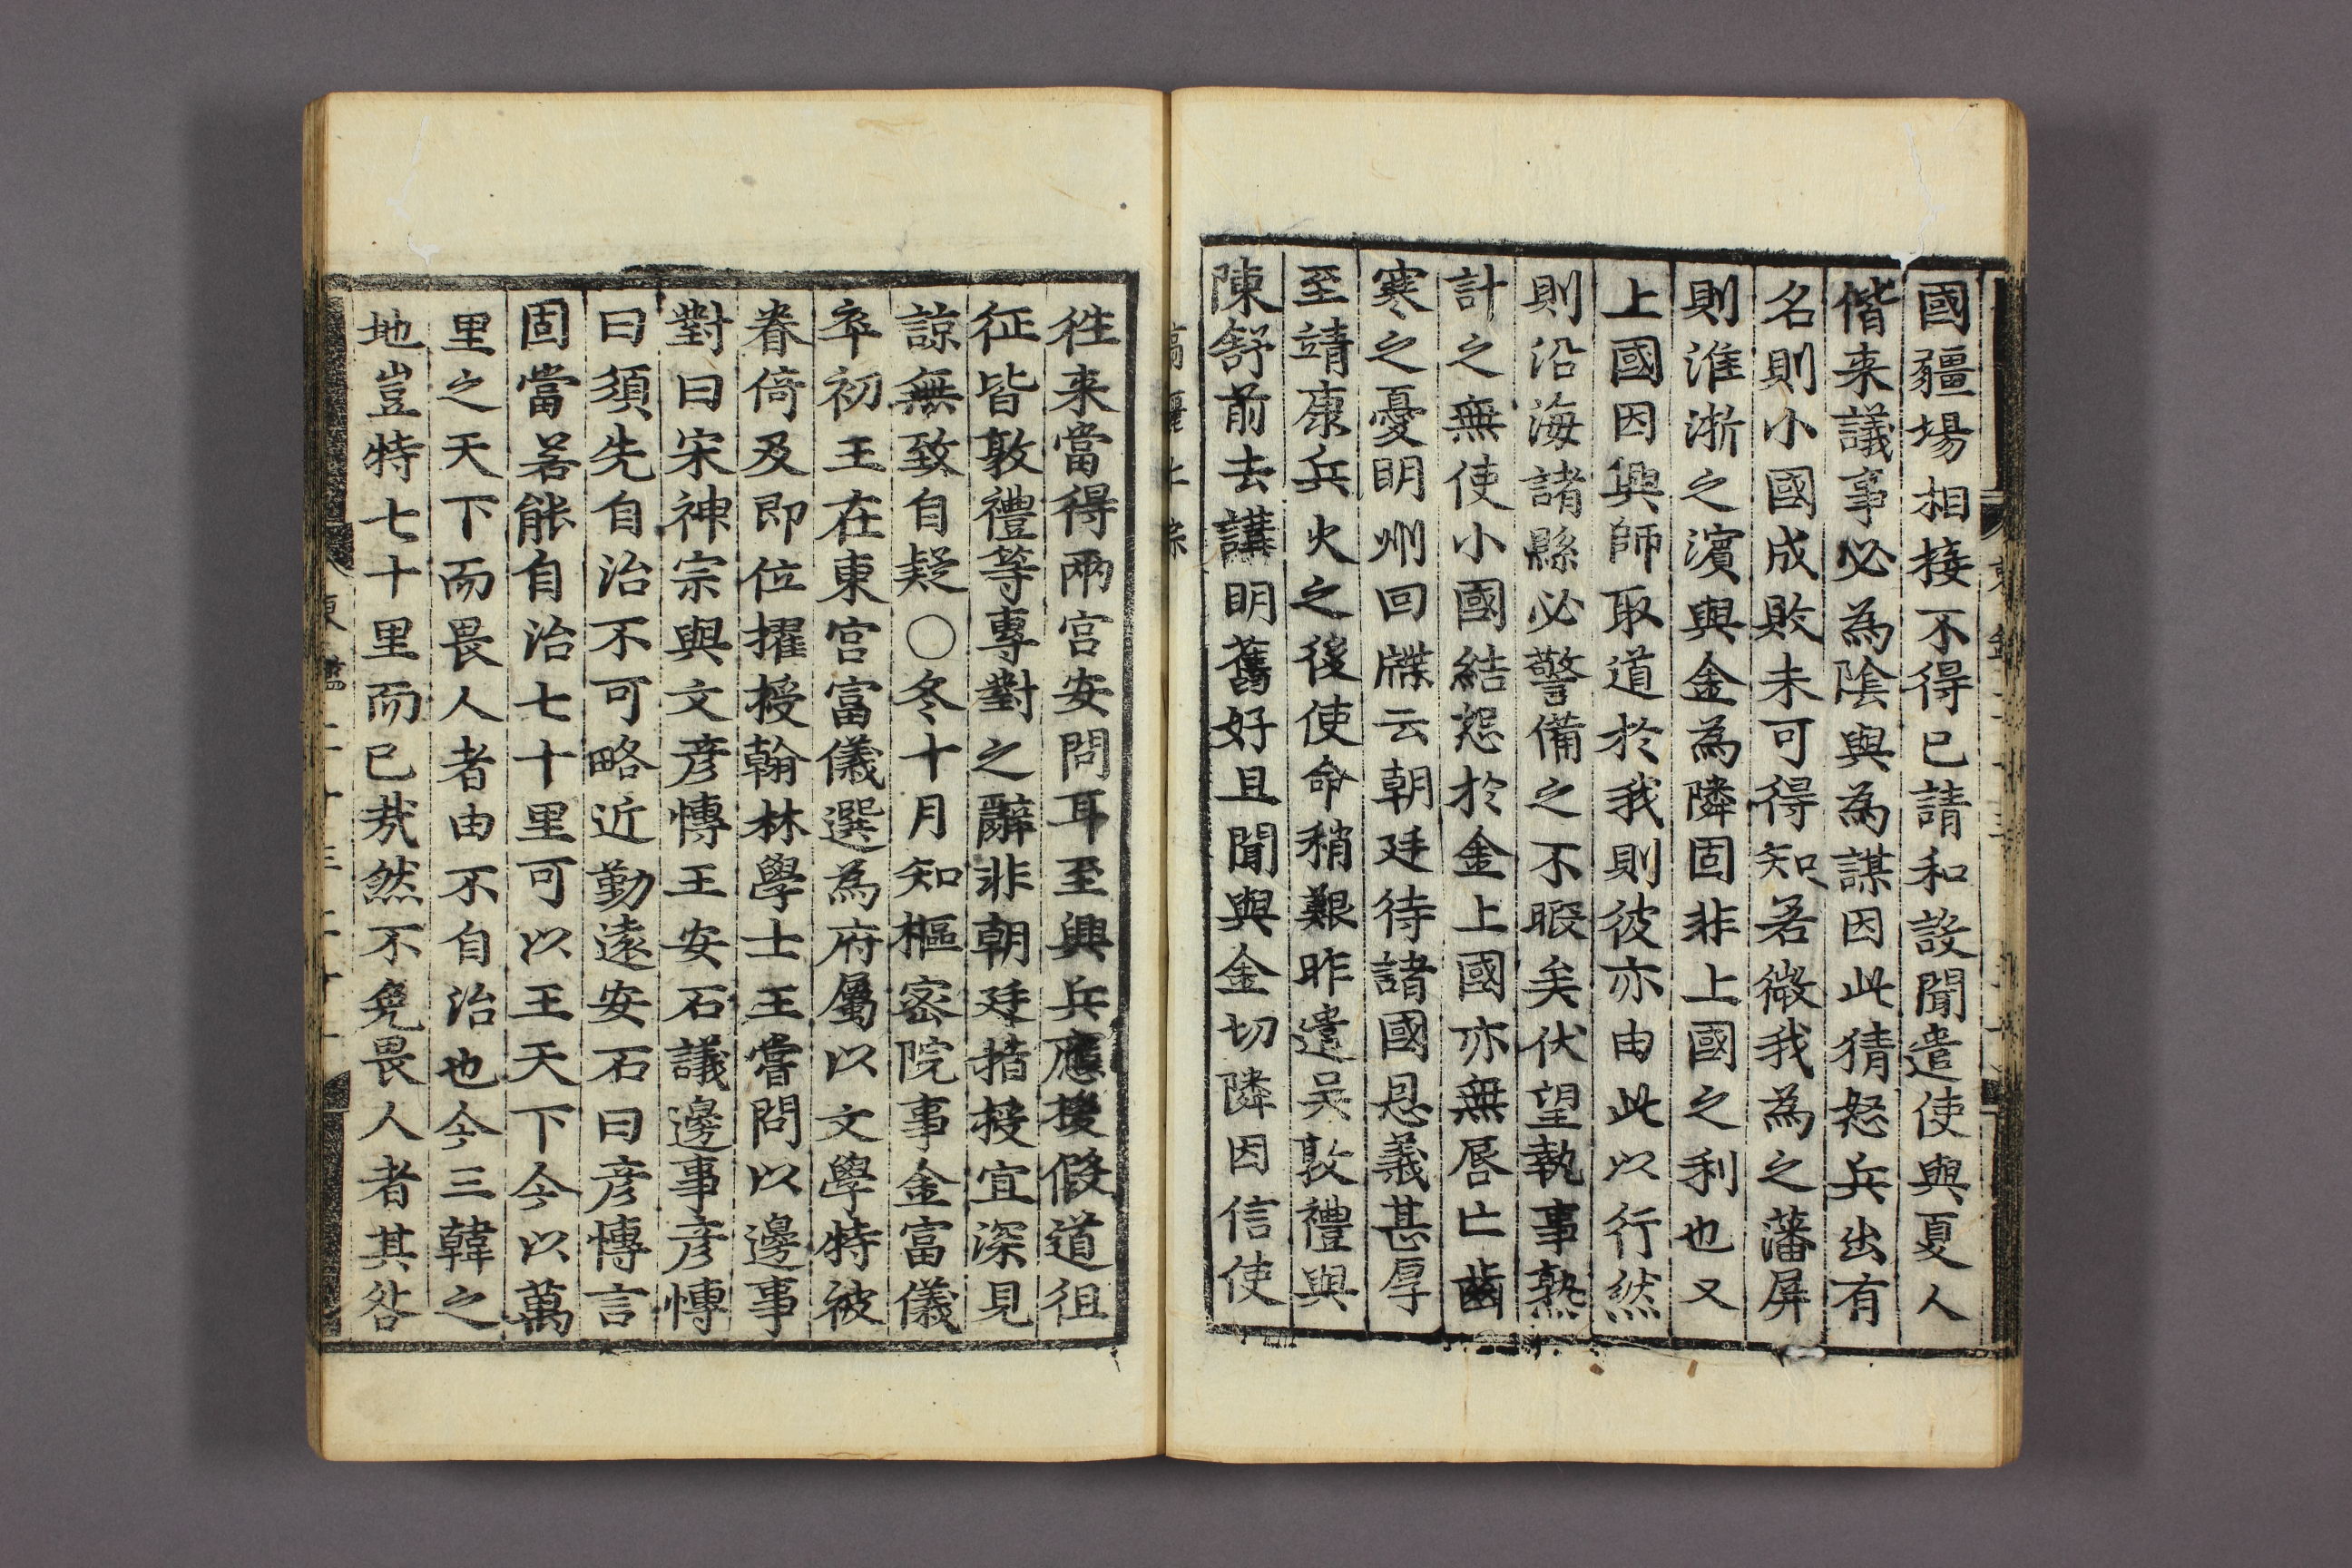 國疆場相接不得已請和設聞遣使與夏人
偕来議事必為陰與為謀因此猜怒兵出有
名則小國成敗未可得知若微我為之藩屏
則淮浙之濵與金為隣固非上國之利也又
上國因興師取道於我則彼亦由此以行然
則沿海諸縣必警備之不暇矣伏望執事熟
計之無使小國結怨於金上國亦無唇亡齒
寒之憂明州回牒云朝廷待諸國恩義甚厚
至靖康兵火之後使命稍艱昨遣吳敦禮與
陳舒前去講明舊好且聞與金切隣因信使
徃来當得兩宫安問耳至興兵應援假道徂
征皆敦禮等專對之辭非朝廷指授宜深見
諒無致自疑〇冬十月知樞密院事金富儀
卒初王在東宫富儀選為府屬以文學特被
眷倚及即位擢授翰林學士王嘗問以邊事
對曰宋神宗與文彦愽王安石議邊事彦愽
曰須先自治不可略近勤遠安石曰彦愽言
固當若能自治七十里可以王天下今以萬
里之天下而畏人者由不自治也今三韓之
地豈特七十里而已㢤然不免畏人者其咎